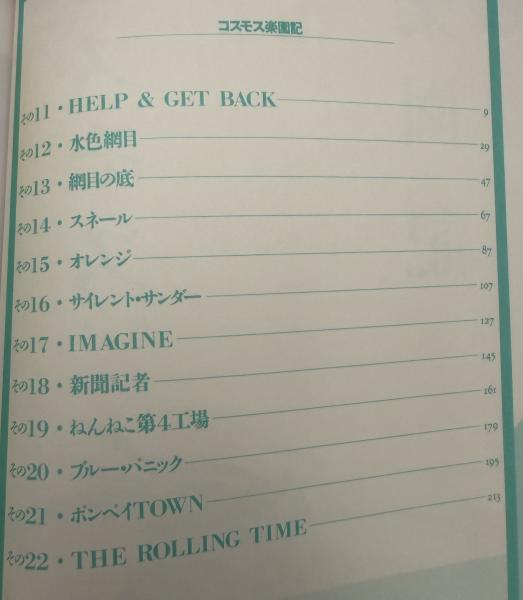 コスモス楽園記
その11・HELP & GET BACK 9
その12・水色網目 29
その13・網目の底 47
その14・スネール 67
その15・オレンジ 87
その16・サイレント・サンダー 107
その17・IMAGINE 127
その18・新聞記者 145
その19・ねんねこ第4工場 161
その20・ブルー・パニック 179
その21・ボンベイTOWN 195
その22・THE ROLLING TIME 213